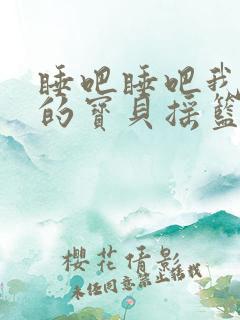 睡吧睡吧我
的寶貝搖籃
櫻花倩影
未經同意禁止轉載